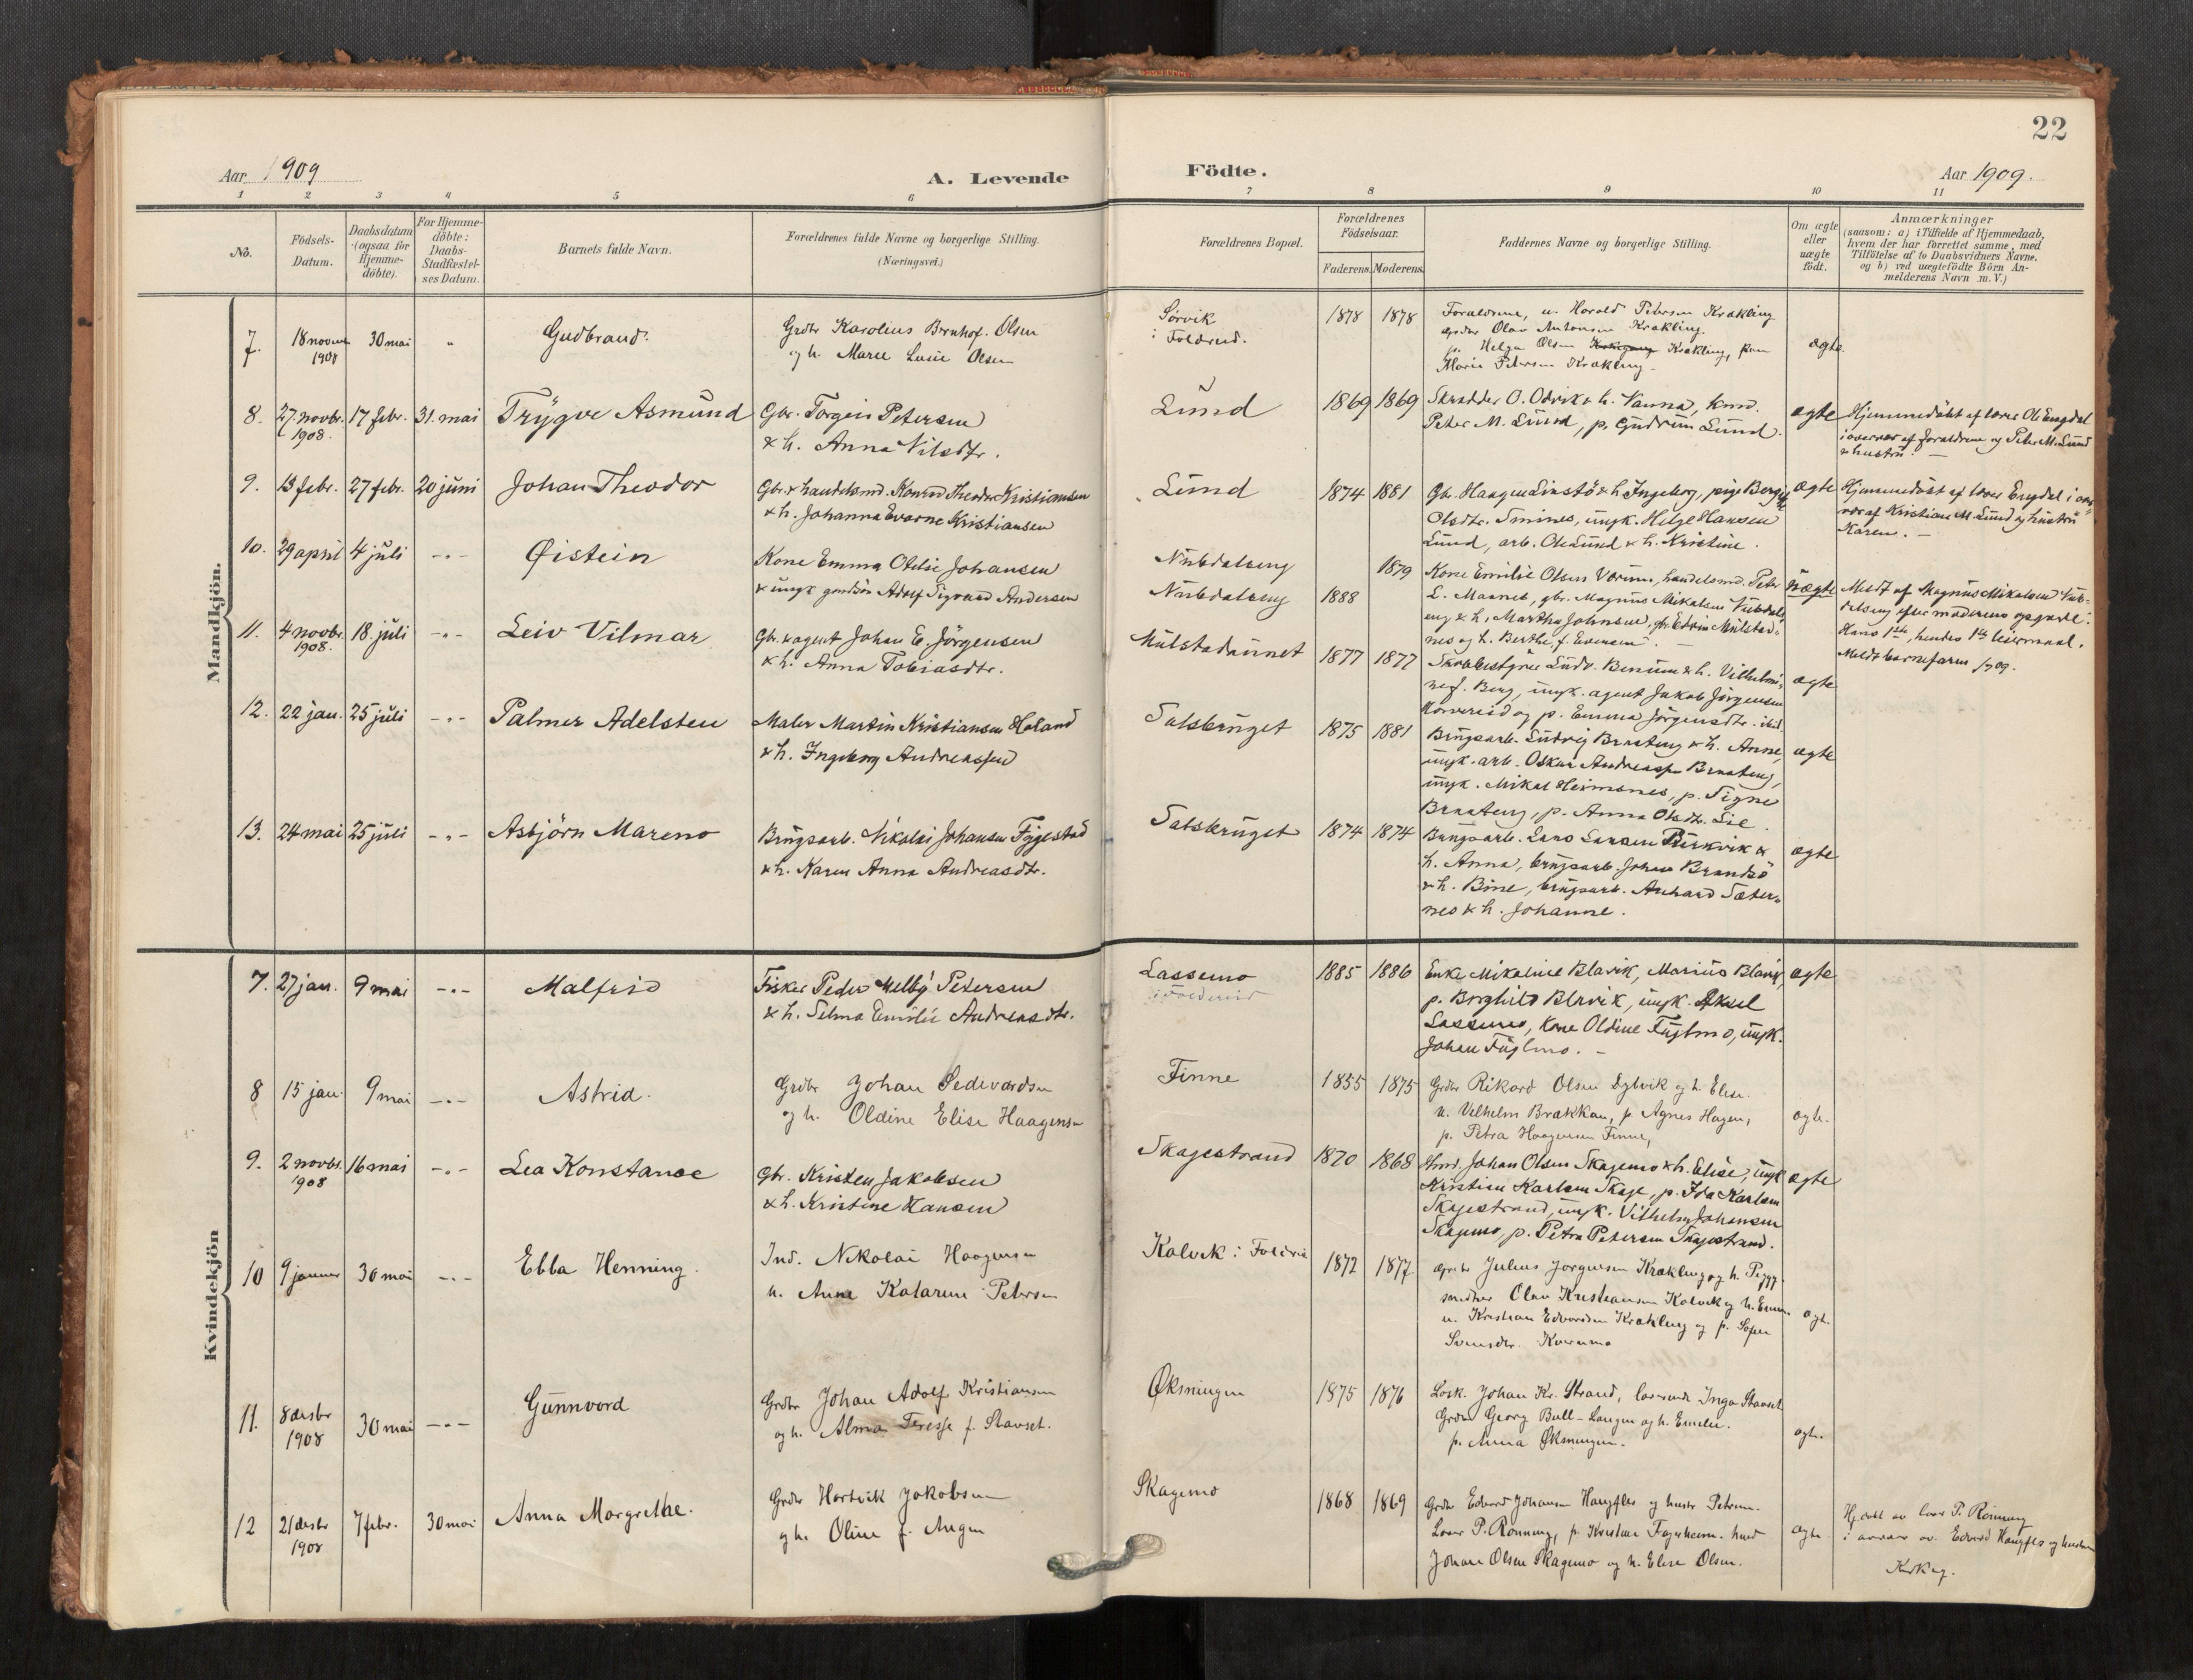 22
Aar 1909
A. Levende
Födte.
Aar 1909.
1 2 3 4 5 6 7 8 9 10 11
No.
Födsels-
Datum.
Daabsdatum
(ogsaa for
Hjemme-
döbte).
For Hjemme-
döbte:
Daabs-
Stadfæstel-
ses Datum.
Barnets fulde Navn.
Forældrenes fulde Navne og borgerlige Stilling.
(Næringsvei.)
Forældrenes Bopæl.
Forældrenes
Födselsaar.
Faderens. Moderens.
Faddernes Navne og borgerlige Stilling.
Om ægte
eller
uægte
födt.
Anmærkninger
(saasom: a) i Tilfælde af Hjemmedaab,
hvem der har forrettet samme, med
Tilföielse af to Daabsvidners Navne.
og b) ved uægtefödte Börn An-
melderens Navn m. V.)
Mandkjön.
7. 18 novem 1908 30 mai " Gudbrand.
Grdbr Karolius Olsen
og h. Marie Lucie Olsen
Sørvik
i Foldereid.
1878 1878
Forældrene, u. Harald Petersen Krækling
Grdbr Olav Antonsen Krækling.
p. Helga Olsen Krækling,
Marie Petersen Krækling
ægte.
8. 27. novbr. 1908. 17 febr. 31. mai Trygve Asmund
Gbr. Torgeis Petersen
& h. Anna Nilsdtr.
Lund
1869 1869
Skrædder O. Odvik & h. Nanna, kmd.
Peter M. Lund, p. Gudrun Lund.
ægte
Hjemmedöbt af lærer Ole Engdal
i overvær af forældrene og Peter M. Lund
& hustru. —
9. 13 febr. 27 febr. 20 juni Johan Theodor
Gbr. & handelsmd. Konrad Theodor Kristiansen
& h. Johanna Kristiansen
Lund
1874 1881
Gbr. Haagen Linstö & h. Ingeborg, pige
Olsdtr. Smines, ungk. Helge Hansen
Lund, arb. Ole Lund & h. Kristine.
ægte
Hjemmedöbt af lærer Engdal i over
vær af Kristian M. Lund og hustru
Karen. —
10. 29 april 4 juli -"- Øistein
Kone Emma Otelie Johansen
& ungk. Adolf Sigvard Andersen
Nubdalseng
Nubdalseng
1888 1879
Kone Emilie Olsen Værum, handelsmd. Peter
L. Maanes, gbr. Magnus Mikalsen Nubdals
eng & h. Martha Johnsen, gbr. Edvin Mulstad-
nes og h. Berthe f. Evensen. —
uægte
Meldt af Magnus Mikalsen Nub-
dalseng efter moderens opgave.
Hans 1ste, hendes 1ste leiermaal.
Meldt barnefaren
11. 4 novbr. 1908. 18. juli -"- Leiv Vilmar
Gbr. & agent Johan E. Jörgensen
& h. Anna Tobiasdtr.
Mulstadaunet
1877 1877
Skrabestyrer Ludv. Benum & h. Vilhelmi-
ne f. Berg, ungk. agent Jakob Jörgensen
og p. Emma Jörgensdtr. ibid.
ægte
12. 22 jan. 25 juli -"- Palmer Adelsten
Maler Martin Kristiansen Høland
& h. Ingeborg Andreassen
Salsbruget
1875 1881
Brugsarb. Ludvig Braateng & h. Anne,
ungk. arb. Oskar Andreassen Braateng,
ungk. Mikal Heimsnes, p. Signe
Braateng, p. Anna Olsdtr. Lie.
ægte
13. 24 mai 25 juli -"- Asbjörn Mareno
Brugsarb. Nikolai Johansen Fygestad
& h. Karen Anna Andreasdtr.
Salsbruget
1874 1874
Brugsarb. Lars Larsen Birkvik &
h. Anna, brugsarb. Johan Brandsö
& h. Bine, brugsarb. Anhard Sæter-
nes & h. Johanne.
ægte
Kvindekjön
7. 27 jan. 9 mai -"- Malfrid
Fisker Peder Melby Petersen
& h. Selma Emilie Andreasdtr.
Lassemo
i Foldereid
1885 1886
Enke Mikaline Blavik, Marius Blavik,
p. Borghild Blavik, ungk. Aksel
Lassemo, Kone Oldine Fuglmo, ungk.
Johan Fuglmo. —
ægte
8 15 jan. 9 mai -"- Astrid.
Grdbr Johan Sedevardsen
og h. Oldine Elise Haagensen
Finne
1855 1875
Grdbr Rikard Olsen og h. Elise.
u. Vilhelm Brækkan, p. Agnes Hagen,
p. Petra Haagensen Finne,
ægte.
9. 2 novbr. 1908 16 mai -"- Lea Konstance
Gbr. Kristen Jakobsen
& h. Kristine Hansen
Skagestrand
1870 1868
Johan Olsen Skagemo & h. Elise, ungk
Kristian Karlsen Skage, p. Ida Karlsen
Skagestrand, ungk. Vilhelm Johansen
Skagemo, p. Petra Petersen Skagestrand.
ægte
10 9 januar 30 mai -"- Ebba Henning.
Ind. Nikolai Haagensen
h. Anne Katarine Petersen
Kalvik i Foldreid
1872 1877
Grdbr Julius Jørgensen Krækling og h.
Olav Kristiansen Kalvik og h.
u. Kristian Edvardsen Krækling og p.
ægte.
11. 8 desbr 1908 30 mai -"- Gunnvord
Grdbr Johan Adolf Kristiansen
og h. Alma Teresse f. Staavset.
Øksningen
1875 1876
Johan Kr. Strand, lærerinde Inga Staavset
Grdbr Georg Bull-Langen og h. Emilie.
p. Anna Øksningen.
ægte.
12 21 desbr 1908 7 febr. 30 mai Anna Margrethe.
Grdbr Hartvik Jakobsen
og h. Oline f.
Skagemo
1868 1869
Grdbr Edvard Johansen og hustr
Lærer P. Rønning, p. Kristine
Johan Olsen Skagemo og h. Elise Olsen.
ægte
Hj.døbt av lærer P. Rønning
i overvær av Edvard og hustru